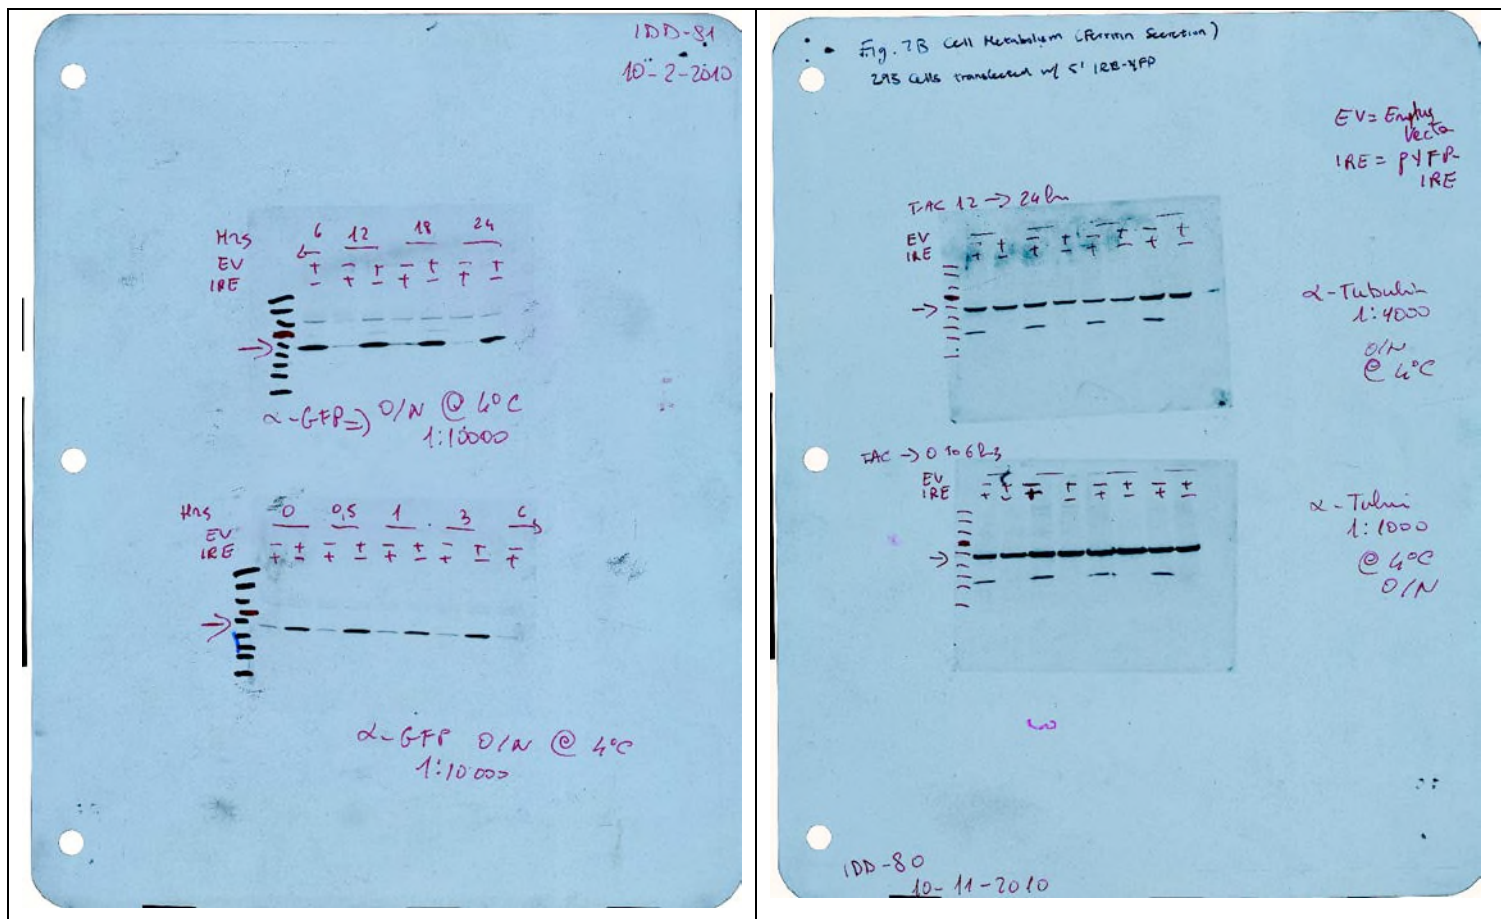 IDD-81
10-2-2010
Hrs 6 12 18 24
EV + - + - + - +
IRE - + - + - + -
α-GFP => O/N @ 4°C
1:10000
Hrs 0 0,5 1 3 6
EV - + - + - + - + -
IRE + - + - + - + - +
α-GFP O/N @ 4°C
1:10000
Fig. 7B Cell Metabolism (Ferritin Secretion)
293 Cells transfected w/ 5' IRE-YFP
EV = Empty
Vector
IRE = pYFP-
IRE
FAC 12 → 24hr
EV - + - + - + - +
IRE + - + - + - + -
α-Tubulin
1:4000
O/N
@ 4°C
FAC → 0 to 6hrs
EV - + - + - + - +
IRE + - + - + - + -
α-
1:1000
@ 4°C
O/N
IDD-80
10-11-2010